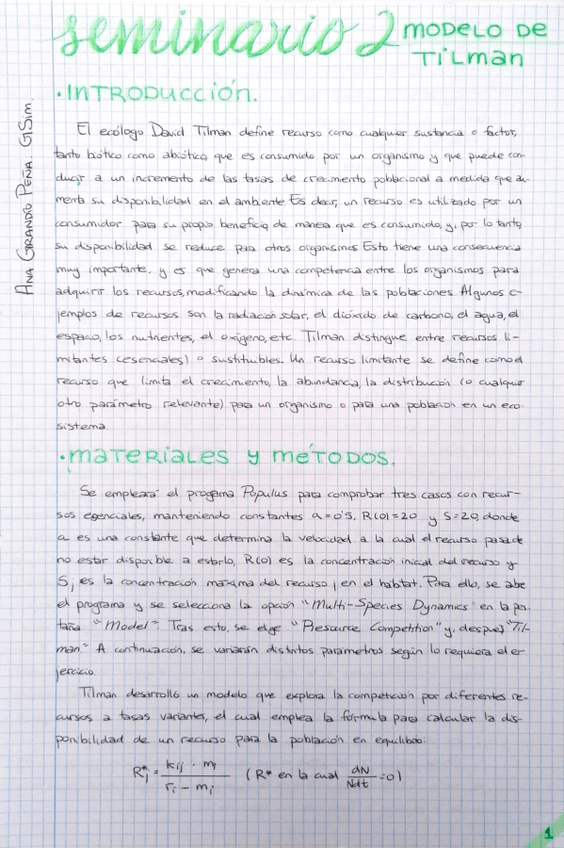 seminario 2 MODELO DE
TiLman
· INTRODUCCIÓN.
El ecólogo David Tilman define recurso como cualquier sustancia o factor,
tanto biótico como abiótico que es consumido por un organismo y que puede con-
ducir a un incremento de las tasas de crecimiento poblacional a medida que au-
menta su disponibilidad en el ambiente Es decir, un recurso es utilizado por un
consumidor para su propio beneficio, de manera que es consumido, y, por lo tanto,
su disponibilidad se reduce para otros organismos Esto tiene una consecuencia
muy importante, y es que genera una competencia entre los organismos para
adquirir los recursos, modificando la dinámica de las poblaciones Algunos e-
jemplos de recursos son la radiación solar, el dióxido de carbono, el agua, el
espacio, los nutrientes, el oxígeno, etc. Tilman distingue entre recursos li-
mitantes (esenciales) o sustituibles. Un recurso limitante se define como el
recurso que limita el crecimiento, la abundancia, la distribución (o cualquier
otro parámetro relevante) para un organismo o para una población en un eco-
sistema.
· MATERIALES Y MÉTODOS.
Se empleará el programa Populus para comprobar tres casos con recur-
sos esenciales, manteniendo constantes a=0'5, R(0)=20 y S=20, donde
a es una constante que determina la velocidad a la cual el recurso pasa de
no estar disponible a estarlo, R(0) es la concentración inicial del recurso y
S, es la concentración máxima del recurso, en el hábitat. Para ello, se abre
el programa y se selecciona la opción "Multi-Species Dynamics" en la pes-
taña "Model". Tras esto, se elige "Resource Competition" y, después "Til-
man." A continuación, se variarán distintos parámetros según lo requiera el e-
jercicio.
Tilman desarrolló un modelo que explora la competición por diferentes re-
cursos a tasas variantes, el cual emplea la fórmula para calcular la dis-
ponibilidad de un recurso para la población en equilibrio:
R*j = kij · mi / ri - mi (R* en la cual dN/Ndt = 0)
1
Ana Gorandio Peña G1Sim.